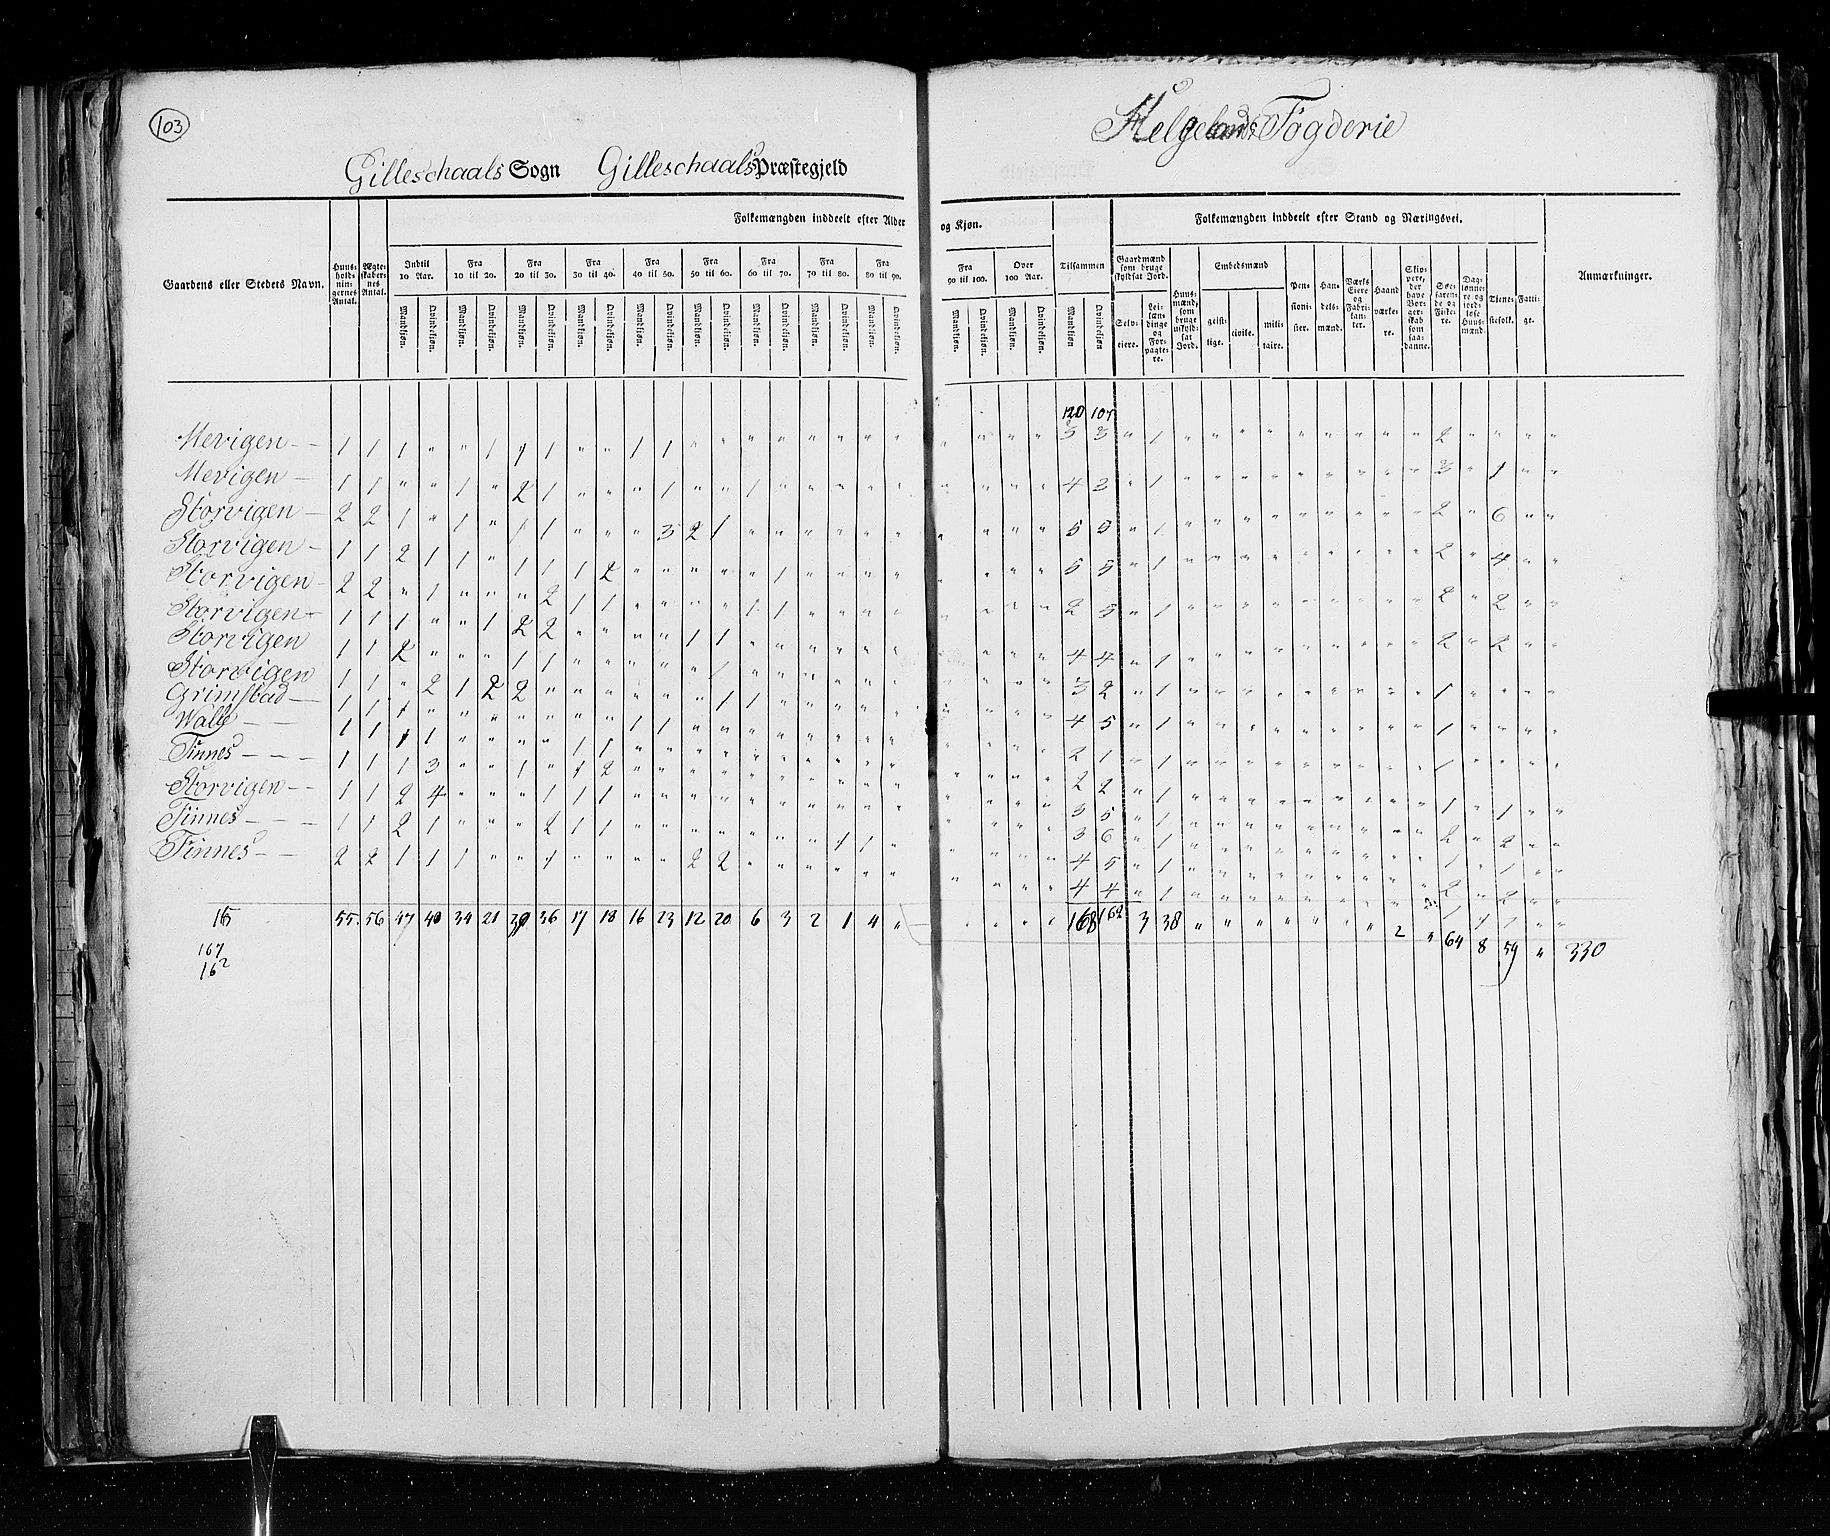 103
Gilleschaals Sogn Gilleschaals Præstegjeld
Helgelands Fogderie
Gaardens eller Stedets Navn.
Huus-hold-nin-gernes Antal.
Ægte-skaber-nes Antal.
Folkemængden inddeelt efter Alder og Kjøn.
Indtil 10 Aar.
Fra 10 til 20.
Fra 20 til 30.
Fra 30 til 40.
Fra 40 til 50.
Fra 50 til 60.
Fra 60 til 70.
Fra 70 til 80.
Fra 80 til 90.
Fra 90 til 100.
Over 100 Aar.
Tilsammen
Mandkjøn. Qvindekjøn.
Folkemængden inddeelt efter Stand og Næringsvei.
Gaardmænd som bruge skyldsat Jord.
Selv-eiere.
Lei-læn-dinge og For-pagte-re.
Huus-mænd, som bruge uskyld-sat Jord.
Embedsmænd
geist-lige.
civile.
mili-taire.
Pen-sioni-ster.
Han-dels-mænd.
Værks Eiere og Fabri-kan-ter.
Haand værke-re.
Skip-pere, der have Bor-ger-skab som saa-danne.
Søe-faren-de og Fiske-re.
Dag-lønne-re og jord-løse Huus-mænd.
Tjene-stefolk.
Fatti-ge.
Anmærkninger.
120 107
Mevigen - - 1 1 1 " " 1 1 1 " " 1 1 " " " " " " " " " " 3 " 1 " " " " " " " " " 2 " " "
Mevigen - 1 1 " " 1 " 2 1 " " " 1 " 1 " " " " " " " " 4 3 " 1 " " " " " " " " " 3 " 1 "
Storvigen - 2 2 1 " 1 " 1 1 " " " 3 2 1 " " " " " " " " " " 5 5 " 1 " " " " " " " " " 2 " 6 "
Storvigen - 1 1 2 1 1 " 1 1 1 2 " " " " " 1 " " " " " " " " 5 5 " 1 " " " " " " " " " 2 " 4 "
Storvigen - 2 2 " 1 " " " 2 1 1 " " " 1 1 " " " " " " " " 2 5 " 1 " " " " " " " " " 2 " 2 "
Storvigen - 1 1 1 " " 1 2 2 " " " " 1 1 " " " " " " " " " " 4 4 " 1 " " " " " " " " " 2 " 2 "
Storvigen 1 1 2 " " " 1 1 " " " " " 1 " " " " " " " " " " 3 2 " 1 " " " " " " " " " 1 " " "
Storvigen 1 1 " 2 1 2 2 " " " " " " 1 1 " " " " " " " " 4 5 " 1 " " " " " " " " " 1 " " "
Grimstad - 1 1 1 " " " " " " " 1 1 " " " " " " " " " " 2 1 " 1 " " " " " " " " " 1 " " "
Walle - - 1 1 1 1 " " " " 1 1 " " " " " " " " " " " " 2 2 " 1
Finnes - - - 1 1 1 3 " " 1 " 1 2 " " " " " " " " " " " " 3 5 " 1
Storvigen - - 1 1 2 4 " " " 1 1 1 " " " " " " " " " " " " 3 6 " 1
Finnes - - - 1 1 2 1 " " " 2 1 1 " " " " " " " 1 1 " 4 5 " 1
Finnes - - 2 2 1 1 1 " " 1 " " " " 2 2 " " " " " " 4 4 " 1
15 55. 56 47 40 34 21 30 36 17 18 16 23 12 20 6 3 2 1 4 " " " " " 168 162 3 38 " " " " " " " 2 " 64 8 59 " 330
167
162